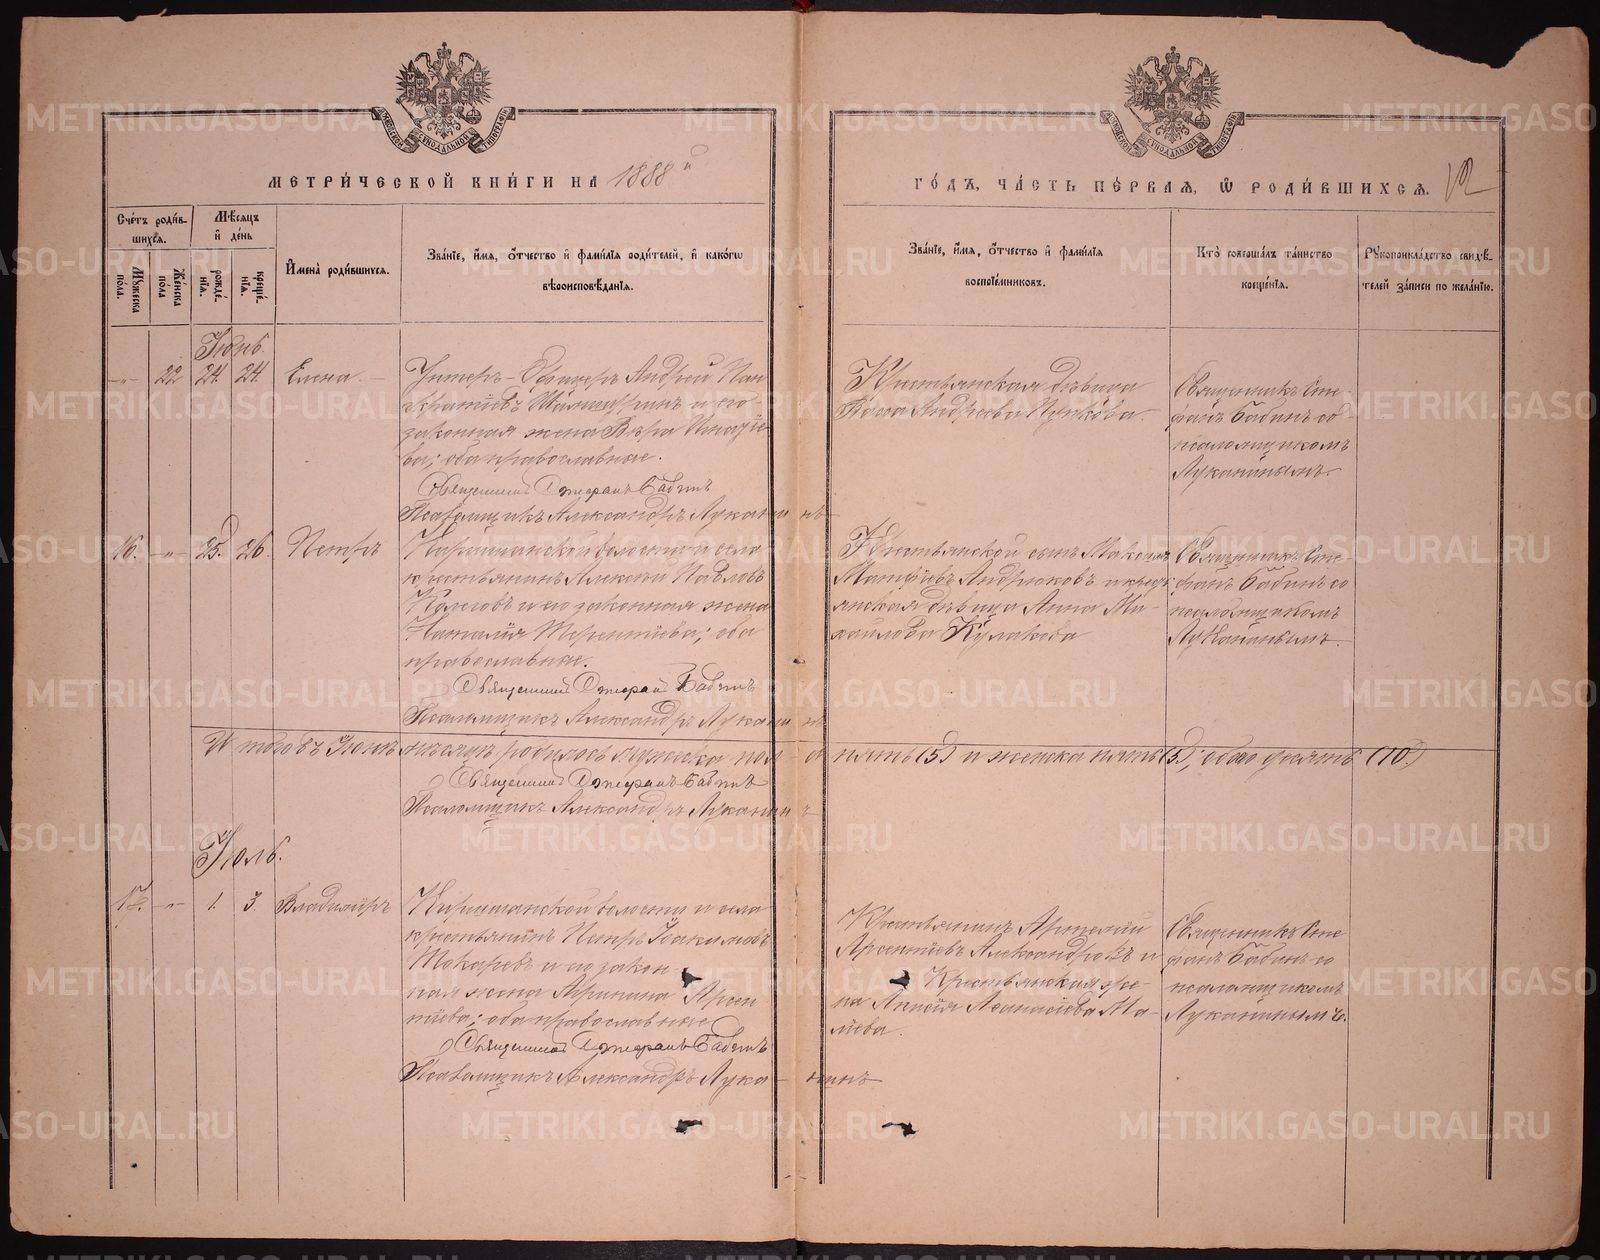 МЕТРИ́ЧЕСКОЙ КНИ́ГИ НА 1888 й
ГО́ДЪ, ЧА́СТЬ ПЕ́РВАЯ, Ѡ РОДИ́ВШИХСЯ.
Сче́тъ роди́в-
шихся.
Мѣ́сяцъ
и де́нь
Му́жеска по́ла.
Же́нска по́ла
рожде́нїя.
креще́нїя.
И҆мена̀ роди́вшихся.
Зва́нїе, и҆́мя, ѻ҆́тчество и҆ фами́лїя роди́телей, и҆ како́гѡ
вѣроисповѣ́данїя.
Зва́нїе, и҆́мя, ѻ҆́тчество и҆ фами́лїя
воспрїе́мниковъ.
Кто̀ соверша́лъ та́инство
креще́нїя.
Рꙋкоприкла́дство свидѣ́-
телей за́писи по жела́нїю.
Іюнь.
22 24. 24. Елена.
Унтеръ-Офицеръ Андрей Пан-
кратіевъ и его
законная жена Вѣра Игнатіе-
ва; оба православные.
Священникъ Стефанъ Бабинъ
Псаломщикъ Александръ Луканинъ
Крестьянская дѣвица
Андреева
Священникъ Сте-
фанъ Бабинъ со
псаломщикомъ
Луканинымъ.
16. 25. 26. Петръ
волости и села
крестьянинъ Алексѣй Павловъ
и его законная жена
Наталія Терентіева; оба
православные.
Священникъ Стефанъ Бабинъ
Псаломщикъ Александръ Луканинъ
Крестьянской сынъ Максимъ
Матфіевъ Андрюковъ и кресть-
янская дѣвица Анна Ми-
хайлова Кулакова
Священникъ Сте-
фанъ Бабинъ со
псаломщикомъ
Луканинымъ.
Итого въ Іюнѣ мѣсяцѣ родилось мужеска пол-а пять (5) и женска пять (5), обоего десять (10.)
Священникъ Стефанъ Бабинъ
Псаломщикъ Александръ Луканинъ
Іюль.
17. 1. 3. Владиміръ
волости и села
крестьянинъ Петръ Іоакимовъ
Токаревъ и его закон-
ная жена Арсен-
тіева; оба православные
Священникъ Стефанъ Бабинъ
Псаломщикъ Александръ Лука-нинъ
Крестьянинъ
Арсентіевъ Александровъ и
Крестьянская же-
на Анисія Аѳанасіева Ма-
Священникъ Сте-
фанъ Бабинъ со
псаломщикомъ
Луканинымъ.
METRIKI.GASO-URAL.RU